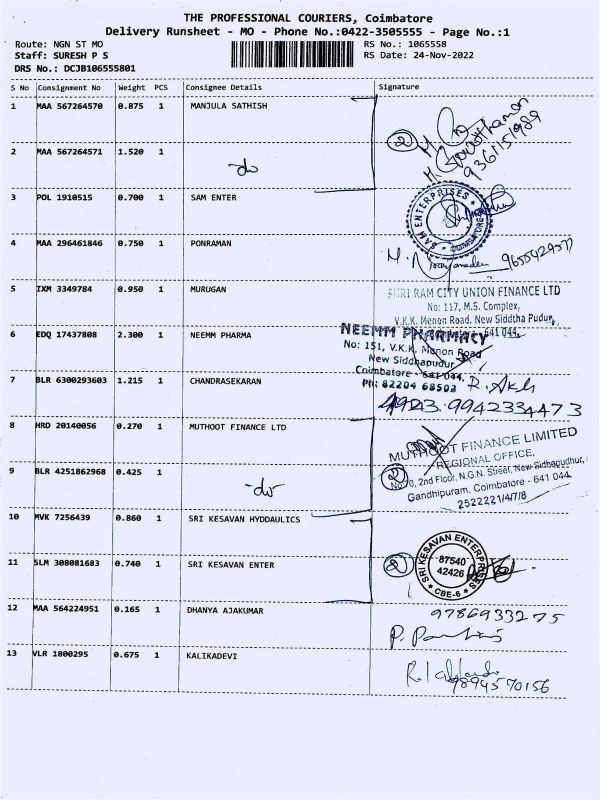 THE PROFESSIONAL COURIERS, Coimbatore
Delivery Runsheet - MO - Phone No.:0422-3505555 - Page No.:1
Route: NGN ST MO
RS No.: 1065558
Staff: SURESH P S
RS Date: 24-Nov-2022
DRS No.: DCJB106555801
S No Consignment No Weight PCS Consignee Details Signature
1 MAA 567264570 0.875 1 MANJULA SATHISH
2
9361151989
2 MAA 567264571 1.520 1
-do-
3 POL 1910515 0.700 1 SAM ENTER
SAM ENTERPRISES * COIMBATORE *
4 MAA 296461846 0.750 1 PONRAMAN
9655429577
5 IXM 3349784 0.950 1 MURUGAN
SHRI RAM CITY UNION FINANCE LTD
No: 117, M.S. Complex,
V.K.K. Menon Road, New Siddha Pudur,
641 044.
6 EDQ 17437808 2.300 1 NEEMM PHARMA
NEEMM PHARMACY
No: 151, V.K.K. Menon Road
New Siddhapudur
Coimbatore - 641 044.
Ph: 82204 68502
7 BLR 6300293603 1.215 1 CHANDRASEKARAN
9942334473
8 HRD 20140056 0.270 1 MUTHOOT FINANCE LTD
MUTHOOT FINANCE LIMITED
REGIONAL OFFICE,
2nd Floor, N.G.N. Street, New Sidhapudhur,
Gandhipuram, Coimbatore - 641 044.
2522221/4/7/8
9 BLR 4251862968 0.425 1
-do-
2
10 MVK 7256439 0.860 1 SRI KESAVAN HYDDAULICS
11 SLM 308081683 0.740 1 SRI KESAVAN ENTER
2
SRI KESAVAN ENTERPRISES
87540
42426
* CBE-6 *
12 MAA 564224951 0.165 1 DHANYA AJAKUMAR
9786933275
13 VLR 1800295 0.675 1 KALIKADEVI
9894570156